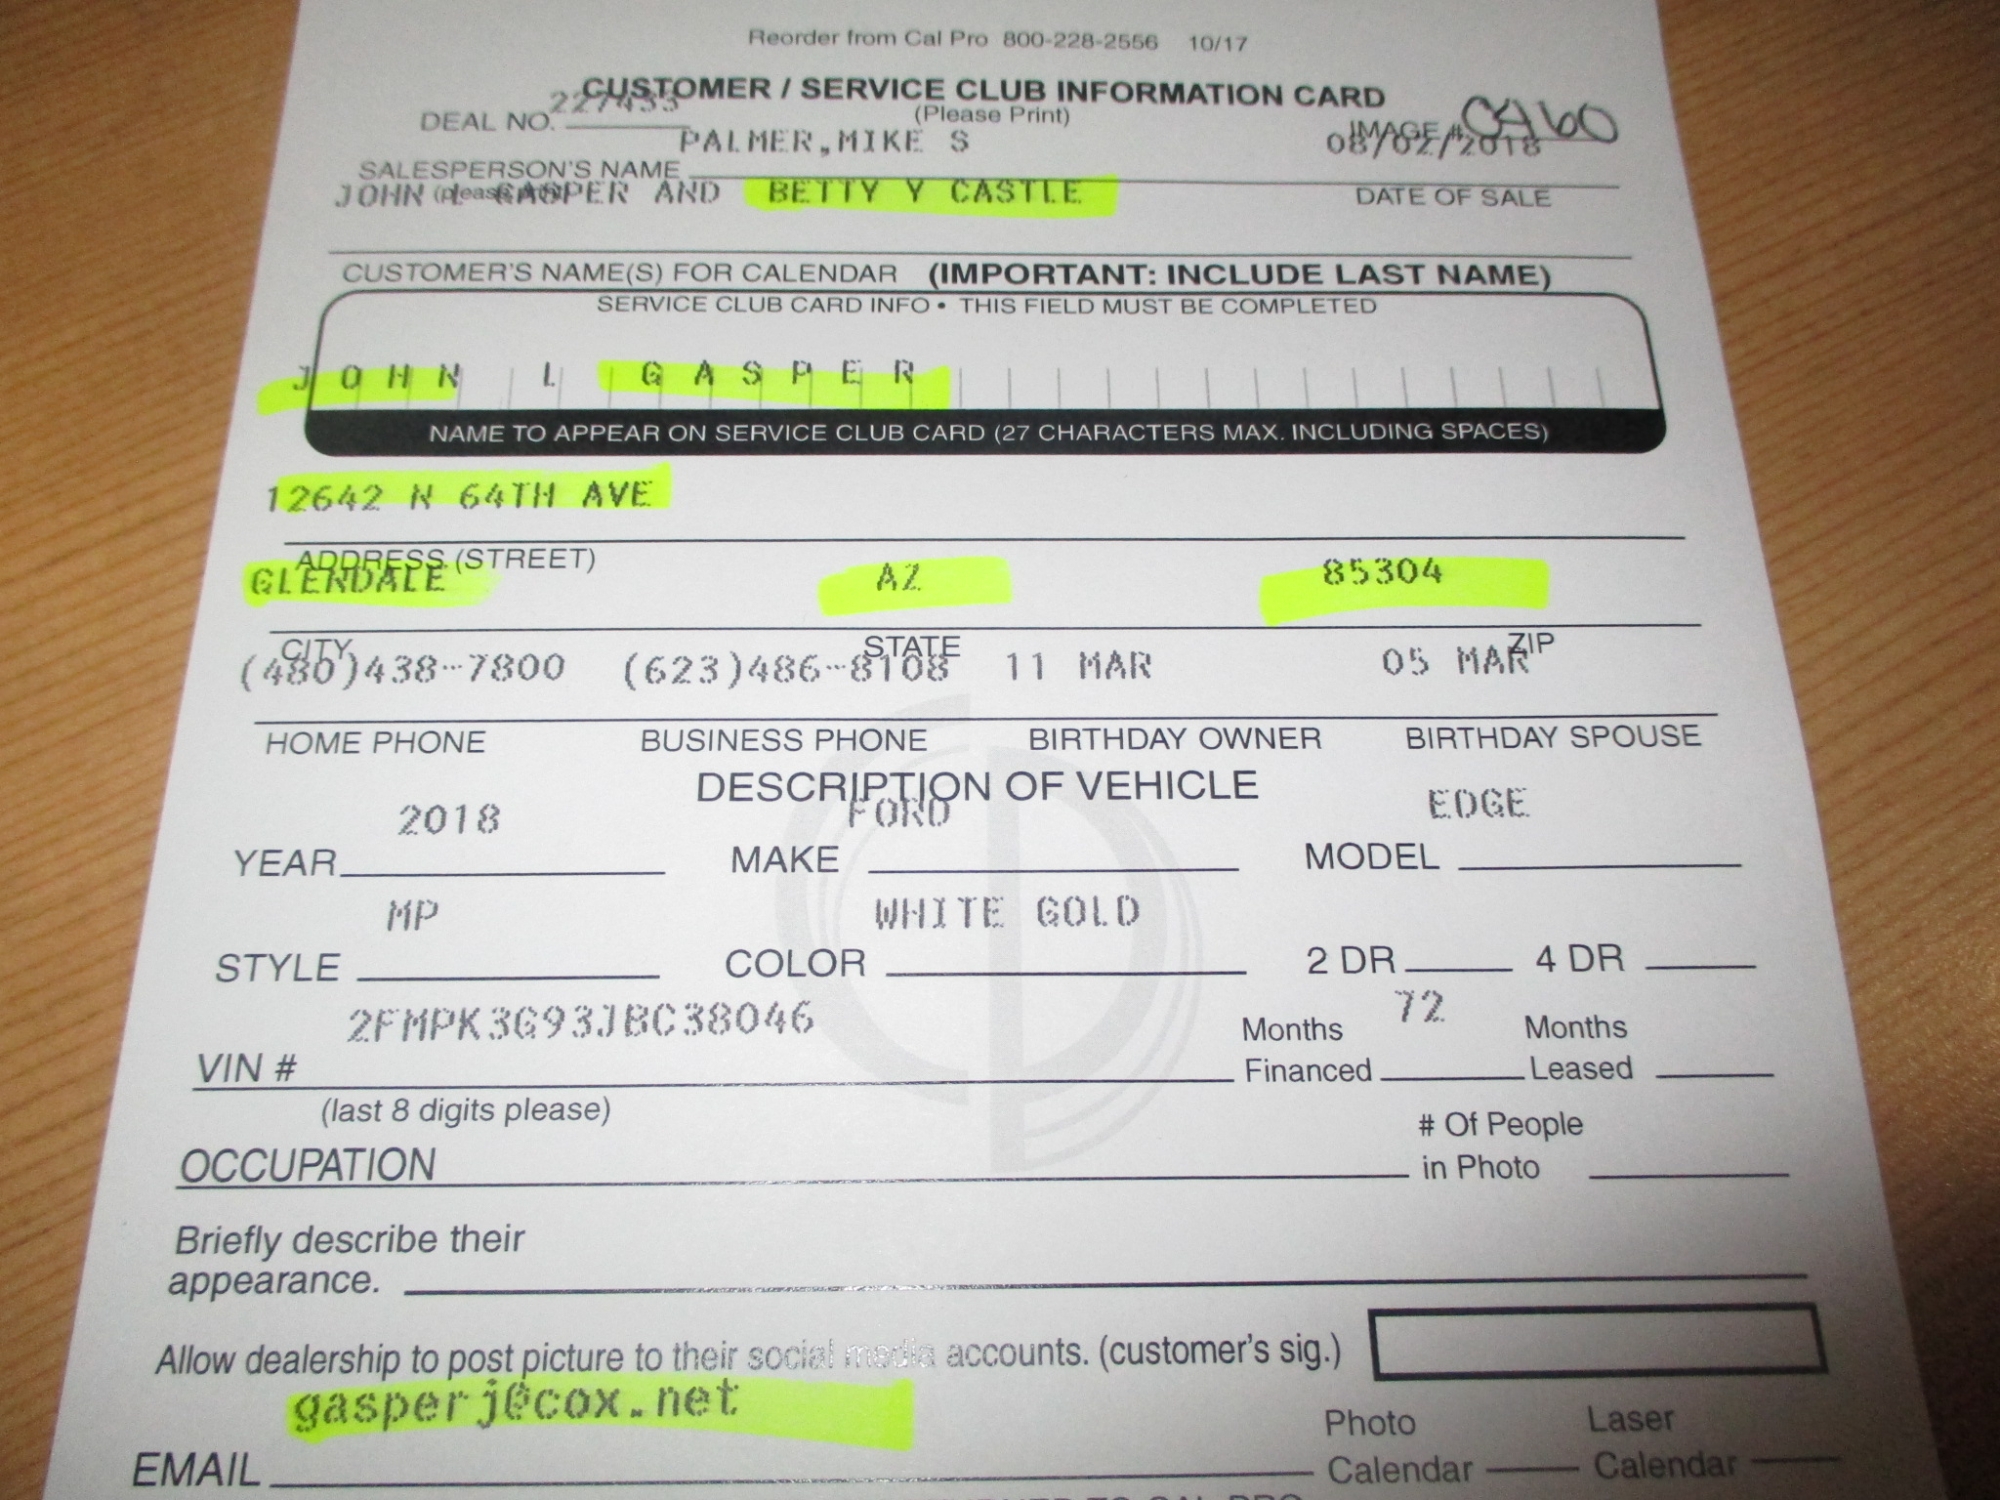 Reorder from Cal Pro 800-228-2556 10/17
CUSTOMER / SERVICE CLUB INFORMATION CARD
(Please Print)
DEAL NO. 227433
IMAGE #
PALMER,MIKE S
08/02/2018
SALESPERSON'S NAME
DATE OF SALE
JOHN L GASPER AND BETTY Y CASTLE
CUSTOMER'S NAME(S) FOR CALENDAR (IMPORTANT: INCLUDE LAST NAME)
SERVICE CLUB CARD INFO • THIS FIELD MUST BE COMPLETED
JOHN L GASPER
NAME TO APPEAR ON SERVICE CLUB CARD (27 CHARACTERS MAX. INCLUDING SPACES)
12642 N 64TH AVE
ADDRESS (STREET)
GLENDALE AZ 85304
CITY STATE ZIP
(480)438-7800 (623)486-8108 11 MAR 05 MAR
HOME PHONE BUSINESS PHONE BIRTHDAY OWNER BIRTHDAY SPOUSE
DESCRIPTION OF VEHICLE
2018 FORD EDGE
YEAR MAKE MODEL
MP WHITE GOLD
STYLE COLOR 2 DR 4 DR
2FMPK3G93JBC38046
72
VIN #
Months Financed
Months Leased
(last 8 digits please)
OCCUPATION
# Of People
in Photo
Briefly describe their
appearance.
Allow dealership to post picture to their social media accounts. (customer's sig.)
gasperj@cox.net
EMAIL
Photo Calendar
Laser Calendar